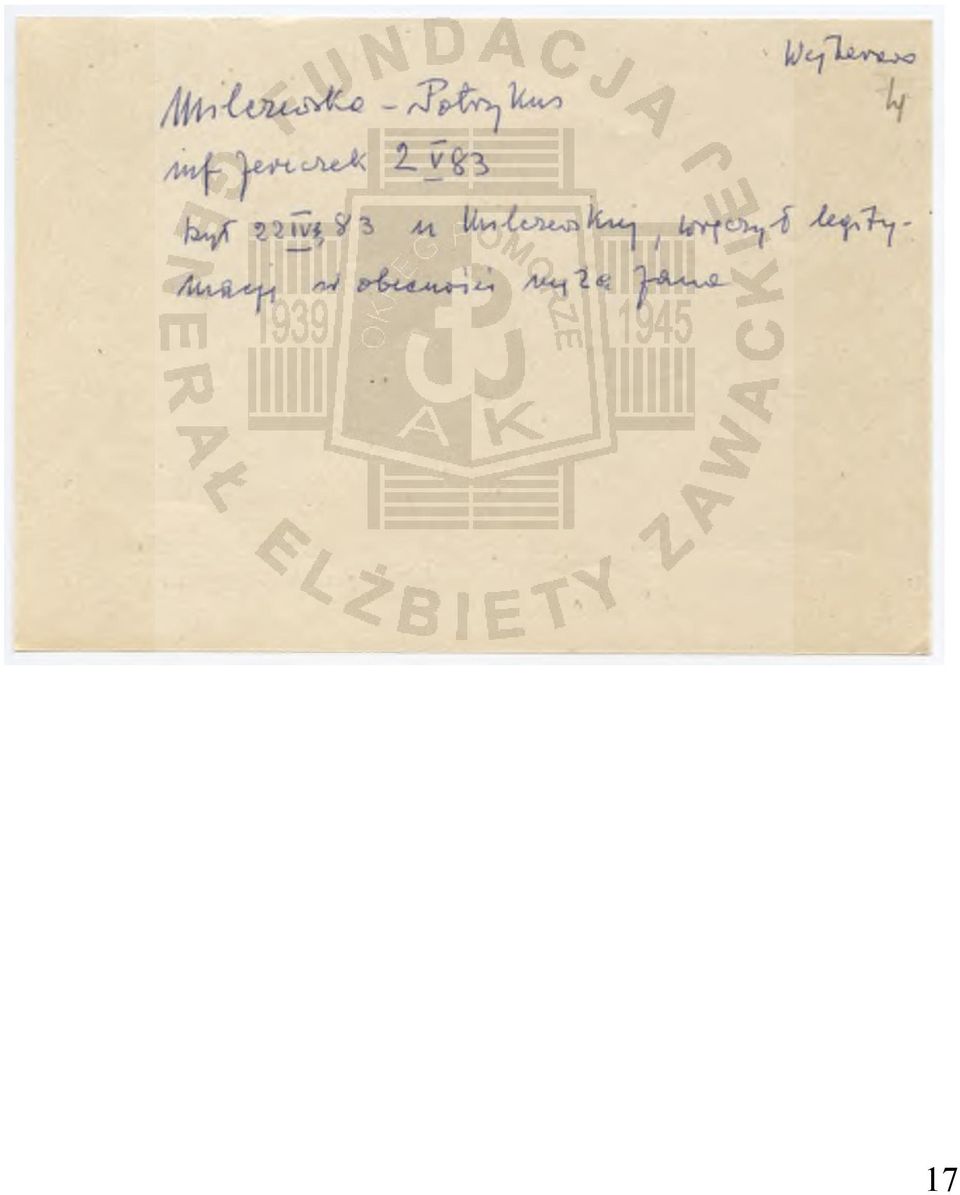 Wejherowo
4
Milczewska - Potrykus
inf. Jereczek 2 V 83
był 22 IV 83 u Milczewskiej, wręczył legity-
mację w obecności męża Jana
FUNDACJA
GENERAŁ ELŻBIETY ZAWACKIEJ
OKRĘG POMORZE
1939
1945
AK
17